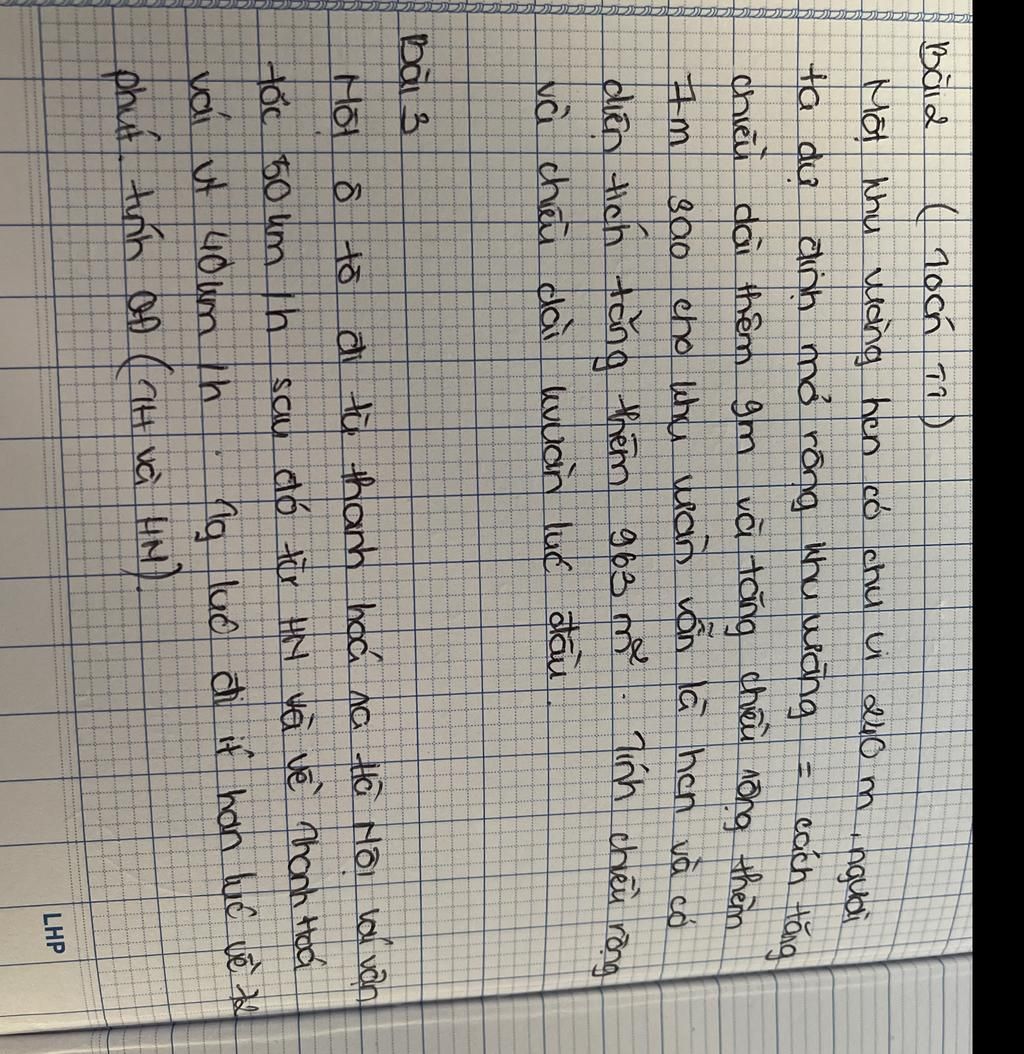 Bài 2 (Toán T1)
Một khu vường hcn có chu vi 240 m, người
ta dự định mở rộng khu vường = cách tăng
chiều dài thêm 9m và tăng chiều rộng thêm
7m sao cho khu vườn vẫn là hcn và có
diện tích tăng thêm 963 m². Tính chiều rộng
và chiều dài kvườn lúc đầu.
Bài 3
Một ô tô đi từ thanh hoá ra Hà Nội với vận
tốc 50 km/h sau đó từ HN và về Thanh Hoá
với vt 40km/h. Tg lúc đi ít hơn lúc về 72
phút. tính QĐ (TH và HN).
LHP